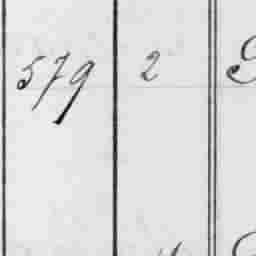 579 2